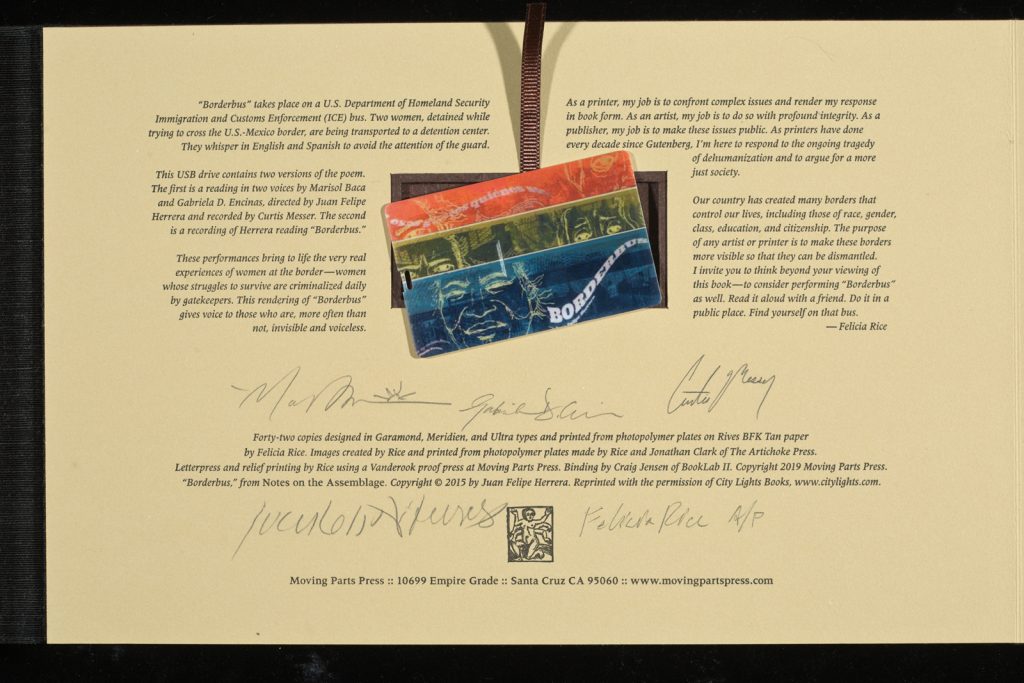 "Borderbus" takes place on a U.S. Department of Homeland Security
Immigration and Customs Enforcement (ICE) bus. Two women, detained while
trying to cross the U.S.-Mexico border, are being transported to a detention center.
They whisper in English and Spanish to avoid the attention of the guard.
This USB drive contains two versions of the poem.
The first is a reading in two voices by Marisol Baca
and Gabriela D. Encinas, directed by Juan Felipe
Herrera and recorded by Curtis Messer. The second
is a recording of Herrera reading "Borderbus."
These performances bring to life the very real
experiences of women at the border—women
whose struggles to survive are criminalized daily
by gatekeepers. This rendering of "Borderbus"
gives voice to those who are, more often than
not, invisible and voiceless.
As a printer, my job is to confront complex issues and render my response
in book form. As an artist, my job is to do so with profound integrity. As a
publisher, my job is to make these issues public. As printers have done
every decade since Gutenberg, I'm here to respond to the ongoing tragedy
of dehumanization and to argue for a more
just society.
Our country has created many borders that
control our lives, including those of race, gender,
class, education, and citizenship. The purpose
of any artist or printer is to make these borders
more visible so that they can be dismantled.
I invite you to think beyond your viewing of
this book—to consider performing "Borderbus"
as well. Read it aloud with a friend. Do it in a
public place. Find yourself on that bus.
— Felicia Rice
quiénes
BORDERBUS
Forty-two copies designed in Garamond, Meridien, and Ultra types and printed from photopolymer plates on Rives BFK Tan paper
by Felicia Rice. Images created by Rice and printed from photopolymer plates made by Rice and Jonathan Clark of The Artichoke Press.
Letterpress and relief printing by Rice using a Vanderook proof press at Moving Parts Press. Binding by Craig Jensen of BookLab II. Copyright 2019 Moving Parts Press.
"Borderbus," from Notes on the Assemblage. Copyright © 2015 by Juan Felipe Herrera. Reprinted with the permission of City Lights Books, www.citylights.com.
Felicia Rice A/P
Moving Parts Press :: 10699 Empire Grade :: Santa Cruz CA 95060 :: www.movingpartspress.com